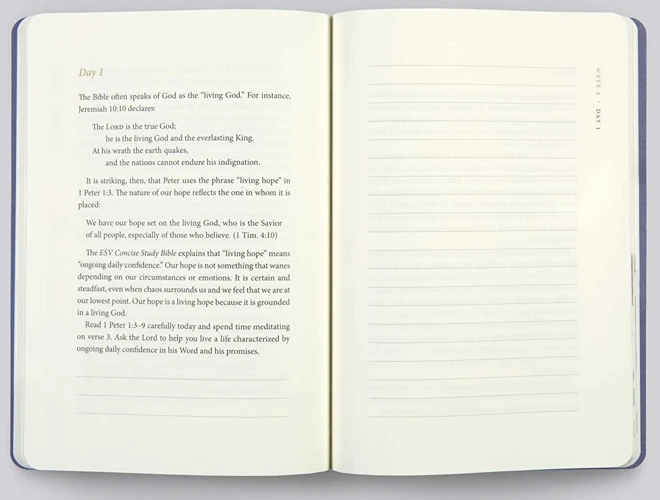 Day 1
The Bible often speaks of God as the “living God.” For instance,
Jeremiah 10:10 declares:
The LORD is the true God;
he is the living God and the everlasting King.
At his wrath the earth quakes,
and the nations cannot endure his indignation.
It is striking, then, that Peter uses the phrase “living hope” in
1 Peter 1:3. The nature of our hope reflects the one in whom it is
placed:
We have our hope set on the living God, who is the Savior
of all people, especially of those who believe. (1 Tim. 4:10)
The ESV Concise Study Bible explains that “living hope” means
“ongoing daily confidence.” Our hope is not something that wanes
depending on our circumstances or emotions. It is certain and
steadfast, even when chaos surrounds us and we feel that we are at
our lowest point. Our hope is a living hope because it is grounded
in a living God.
Read 1 Peter 1:3–9 carefully today and spend time meditating
on verse 3. Ask the Lord to help you live a life characterized by
ongoing daily confidence in his Word and his promises.
WEEK 4 • DAY 1